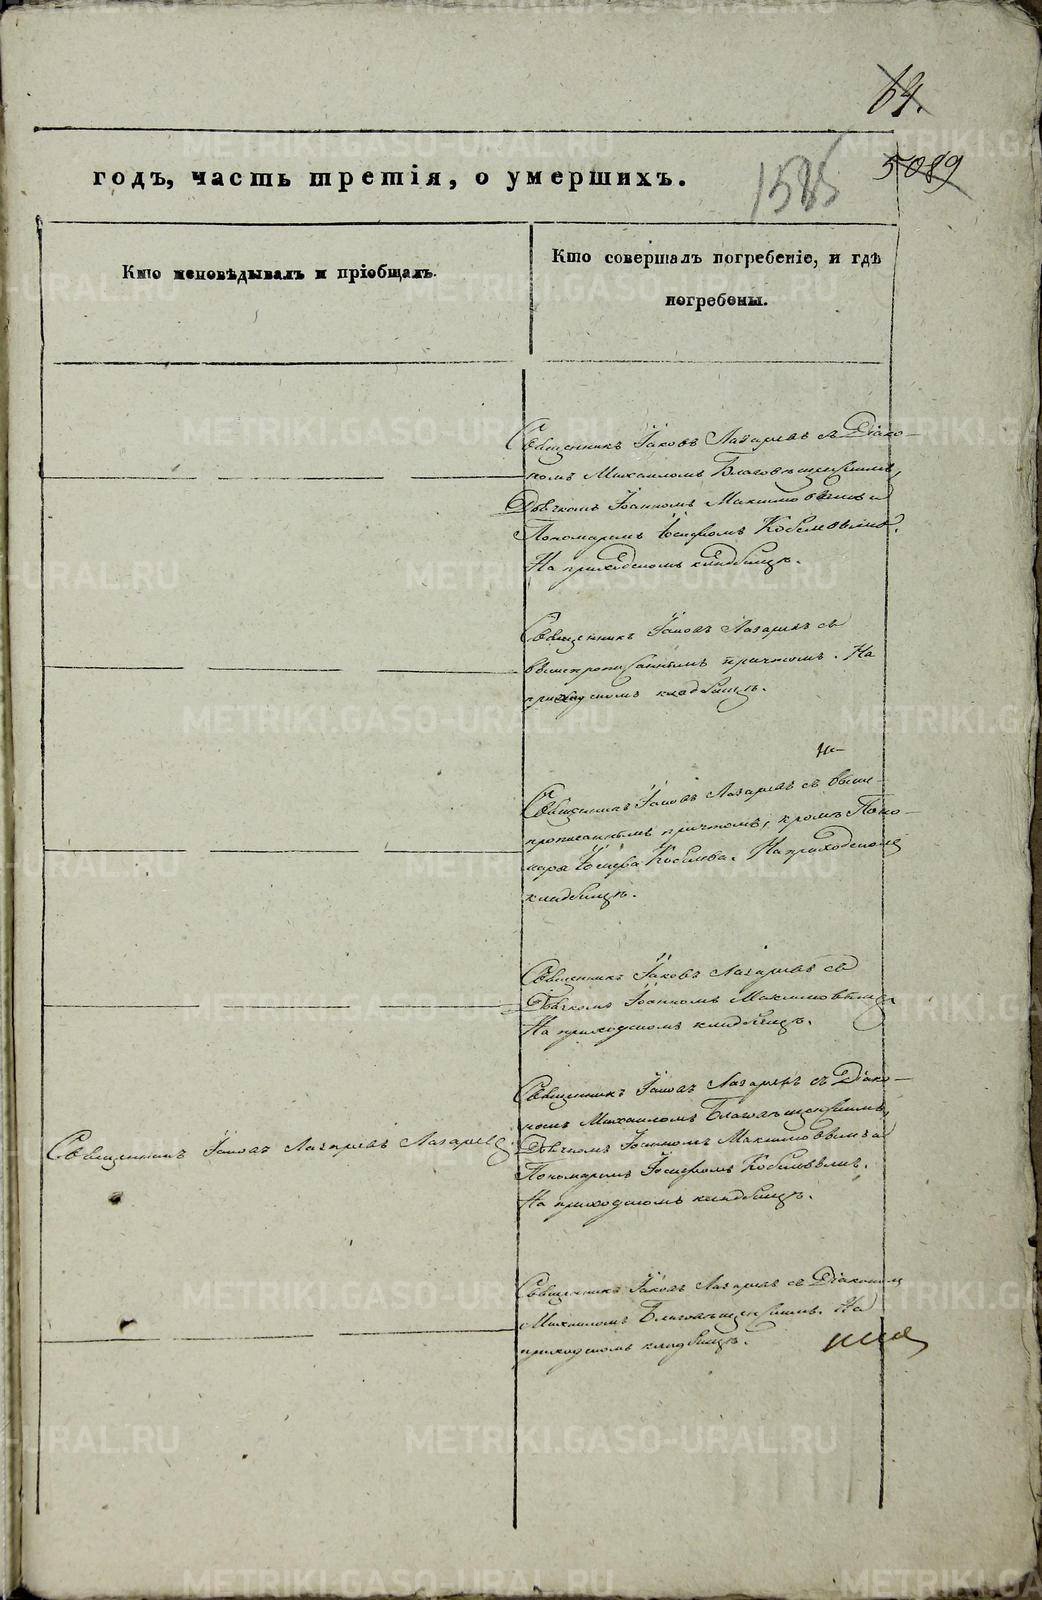 64.
5089
1585
годъ, часть третія, о умершихъ.
Кто исповѣдывалъ и пріобщалъ.
Кто совершалъ погребеніе, и гдѣ
погребены.
Священникъ Іаковъ Лазаревъ съ Діако-
номъ Михаиломъ Благовѣщенскимъ,
Дьячкомъ Іоанномъ Максимовымъ и
Пономаремъ Іосифомъ Кобелевымъ.
На приходскомъ кладбищѣ.
Священникъ Іаковъ Лазаревъ съ
вышепрописаннымъ причтомъ. На
приходскомъ кладбищѣ.
Священникъ Іаковъ Лазаревъ съ выше-
прописаннымъ причтомъ, кромѣ Поно-
маря Іосифа Кобелева. На приходскомъ
кладбищѣ.
Священникъ Іаковъ Лазаревъ съ
Дьячкомъ Іоанномъ Максимовымъ.
На приходскомъ кладбищѣ.
Священникъ Іаковъ Лазаревъ Лазаревъ
Священникъ Іаковъ Лазаревъ съ Діако-
номъ Михаиломъ Благовѣщенскимъ,
Дьячкомъ Іоанномъ Максимовымъ и
Пономаремъ Іосифомъ Кобелевымъ.
На приходскомъ кладбищѣ.
Священникъ Іаковъ Лазаревъ съ Діакономъ
Михаиломъ Благовѣщенскимъ. На
приходскомъ кладбищѣ.
METRIKI.GASO-URAL.RU